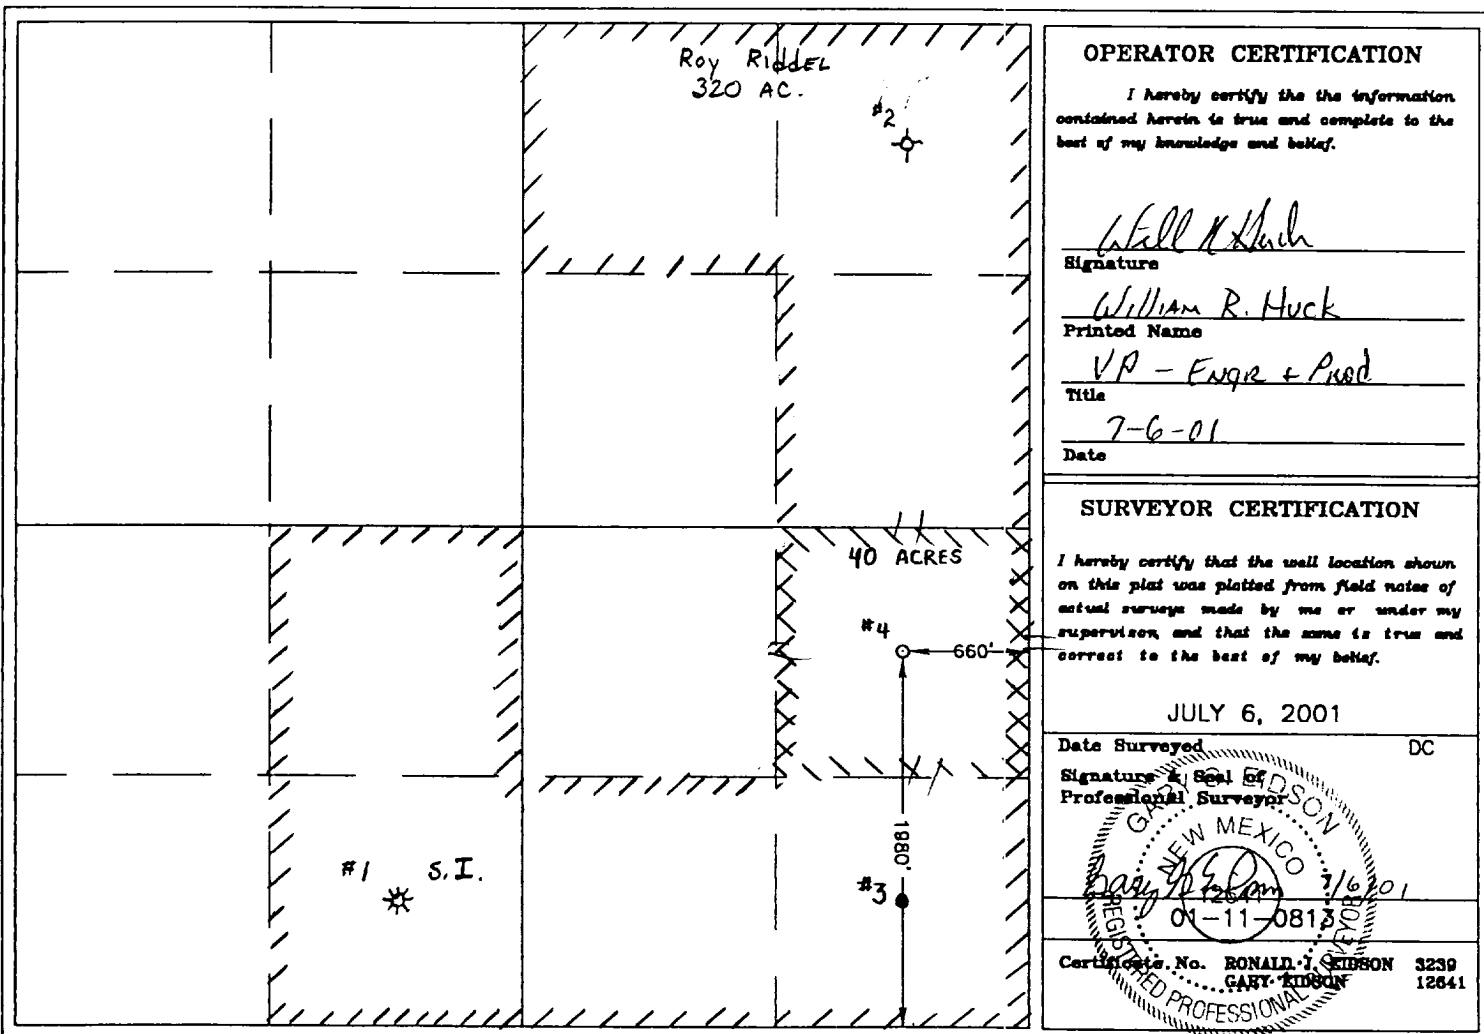 Roy Riddel
320 AC.
#2
40 ACRES
#4
660'
1980'
#1 S.I.
#3
OPERATOR CERTIFICATION
I hereby certify the the information
contained herein is true and complete to the
best of my knowledge and belief.
Signature
William R. Huck
Printed Name
VP - Engr + Prod
Title
7-6-01
Date
SURVEYOR CERTIFICATION
I hereby certify that the well location shown
on this plat was plotted from field notes of
actual surveys made by me or under my
supervison, and that the same is true and
correct to the best of my belief.
JULY 6, 2001
Date Surveyed DC
Signature & Seal of
Professional Surveyor
GARY G. EIDSON
NEW MEXICO
12641
7/6/01
01-11-0813
REGISTERED PROFESSIONAL SURVEYOR
Certificate No. RONALD J. EIDSON 3239
GARY EIDSON 12641